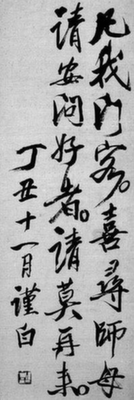 凡我门客。喜寻師母
请安问好者。请莫再来。
丁丑十一月謹白